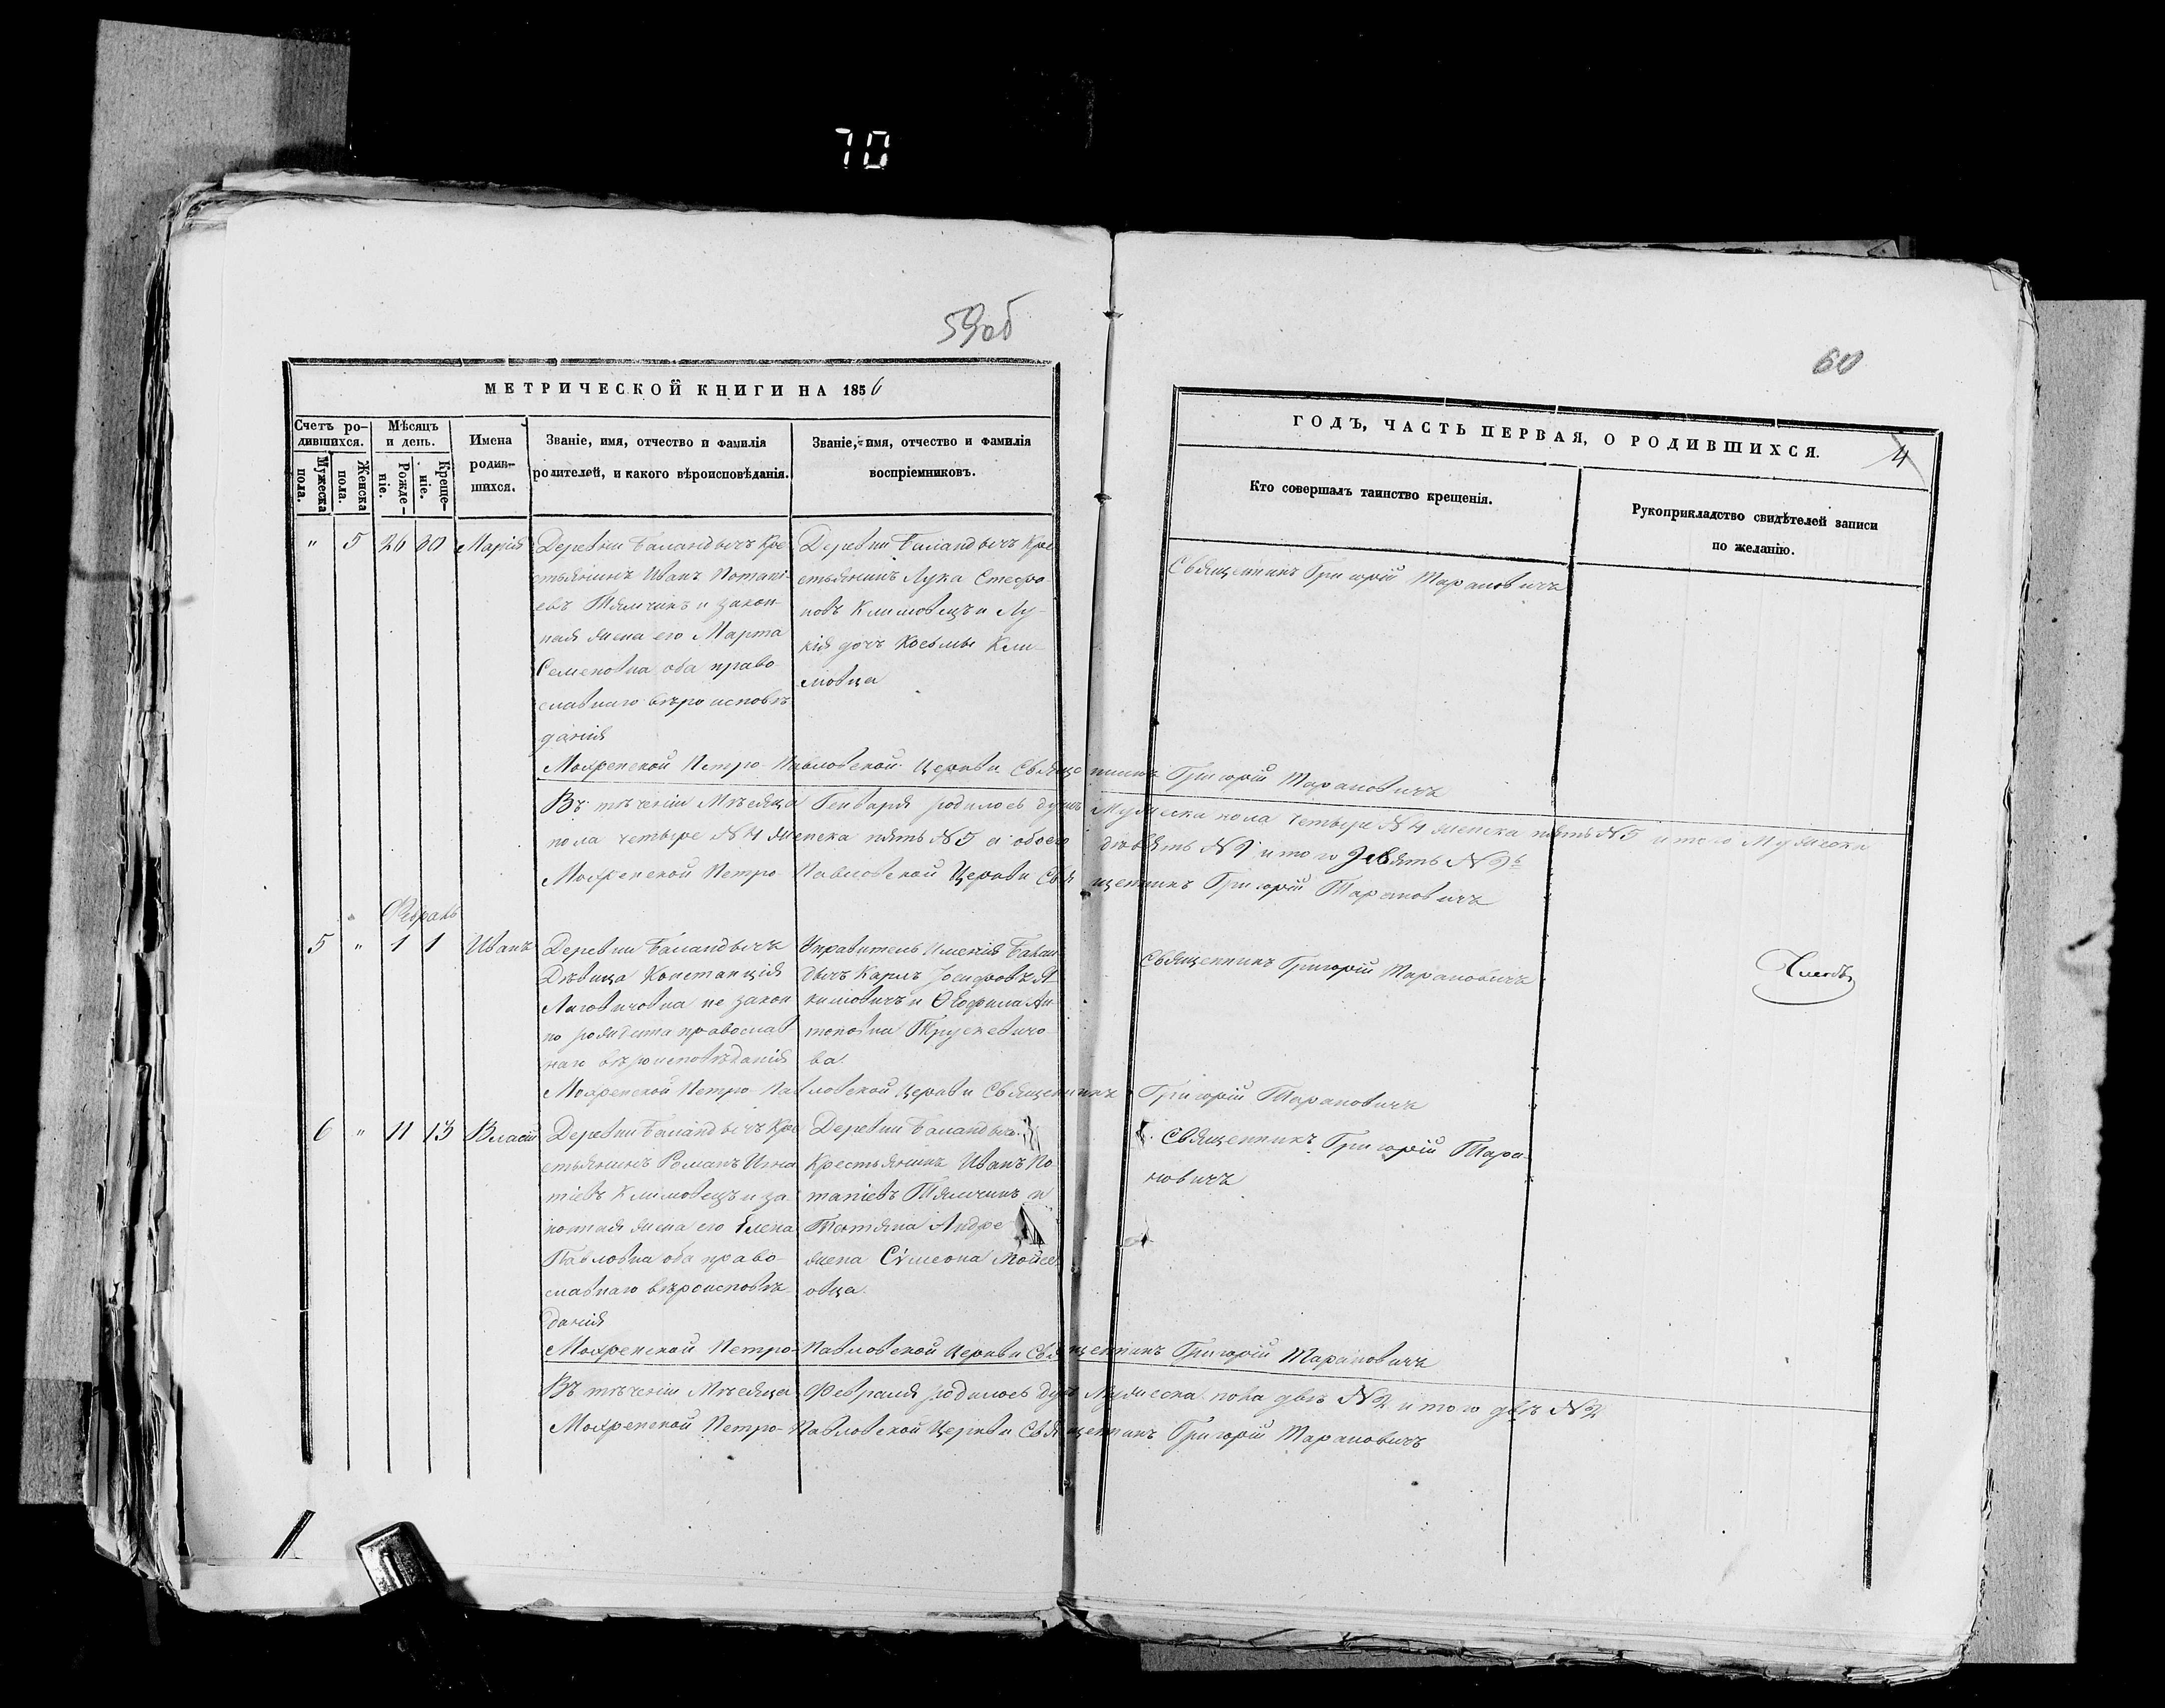 70
59об
60
МЕТРИЧЕСКОЙ КНИГИ НА 1856
ГОДЪ, ЧАСТЬ ПЕРВАЯ, О РОДИВШИХСЯ.
4
Счетъ ро-
дившихся.
Мужеска
пола.
Женска
пола.
Мѣсяцъ
и день.
Рожде-
ніе.
Креще-
ніе.
Имена
родив-
шихся.
Званіе, имя, отчество и фамилія
родителей, и какого вѣроисповѣданія.
Званіе, имя, отчество и фамилія
воспріемниковъ.
Кто совершалъ таинство крещенія.
Рукоприкладство свидѣтелей записи
по желанію.
" 5 26 30 Марія
Деревни Баландычъ Кре
стьянинъ Иванъ Потапі-
евъ Тямчикъ и закон-
ная жена его Марта
Семеновна оба право
славнаго вѣроисповѣ
данія
Деревни Баландычъ Кре
стьянинъ Лука Стефа-
новъ Климовецъ и Лу-
кія дочь Косьмы Кли-
мовца
Священникъ Григорій Тарановичъ
Мохренской Петро-Павловской Церкви Священникъ Григорій Тарановичъ
Въ теченіи Мѣсяца Генваря родилось душъ Мужеска пола четыре N 4 женска пять N 5 итого Мужеска
пола четыре N 4 женска пять N 5 а обоего девять N 9 итого Девять N 9
Мохренской Петро-Павловской Церкви Священникъ Григорій Тарановичъ
Февраль
5 " 1 1 Иванъ
Деревни Баландычъ
Дѣвица Констанція
не закон
но рожденна православ
наго вѣроисповѣданія
Управитель Имѣнія Балан
дычъ Карлъ Іосифовъ Я
кимовичъ и Ѳеофила Ан
тоновна Трускевичо-
ва.
Священникъ Григорій Тарановичъ
Мохренской Петро-Павловской Церкви Священникъ Григорій Тарановичъ
6 " 11 13 Власій
Деревни Баландычъ Кре
стьянинъ Романъ Игна
тіевъ Климовецъ и за
конная жена его Елена
Павловна оба право-
славнаго вѣроисповѣ
данія
Деревни Баландычъ
Крестьянинъ Иванъ По
тапіевъ Тямчикъ и
Татяна Андре
жена Сѵмеона Мойсе
овца.
Священникъ Григорій Тара-
новичъ
Мохренской Петро-Павловской Церкви Священникъ Григорій Тарановичъ
Въ теченіи Мѣсяца Февраля родилось душъ Мужеска пола двѣ N 2 итого двѣ N 2
Мохренской Петро-Павловской Церкви Священникъ Григорій Тарановичъ